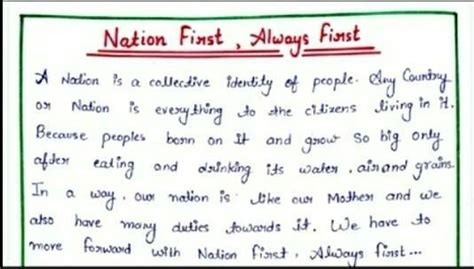 Nation First, Always First
A Nation is a collective identity of people. Any Country
or Nation is everything to the citizens living in it.
Because peoples born on It and grow so big only
after eating and drinking its water, air and grains.
In a way, our nation is like our Mother and we
also have many duties towards it. We have to
move forward with Nation first, Always first...